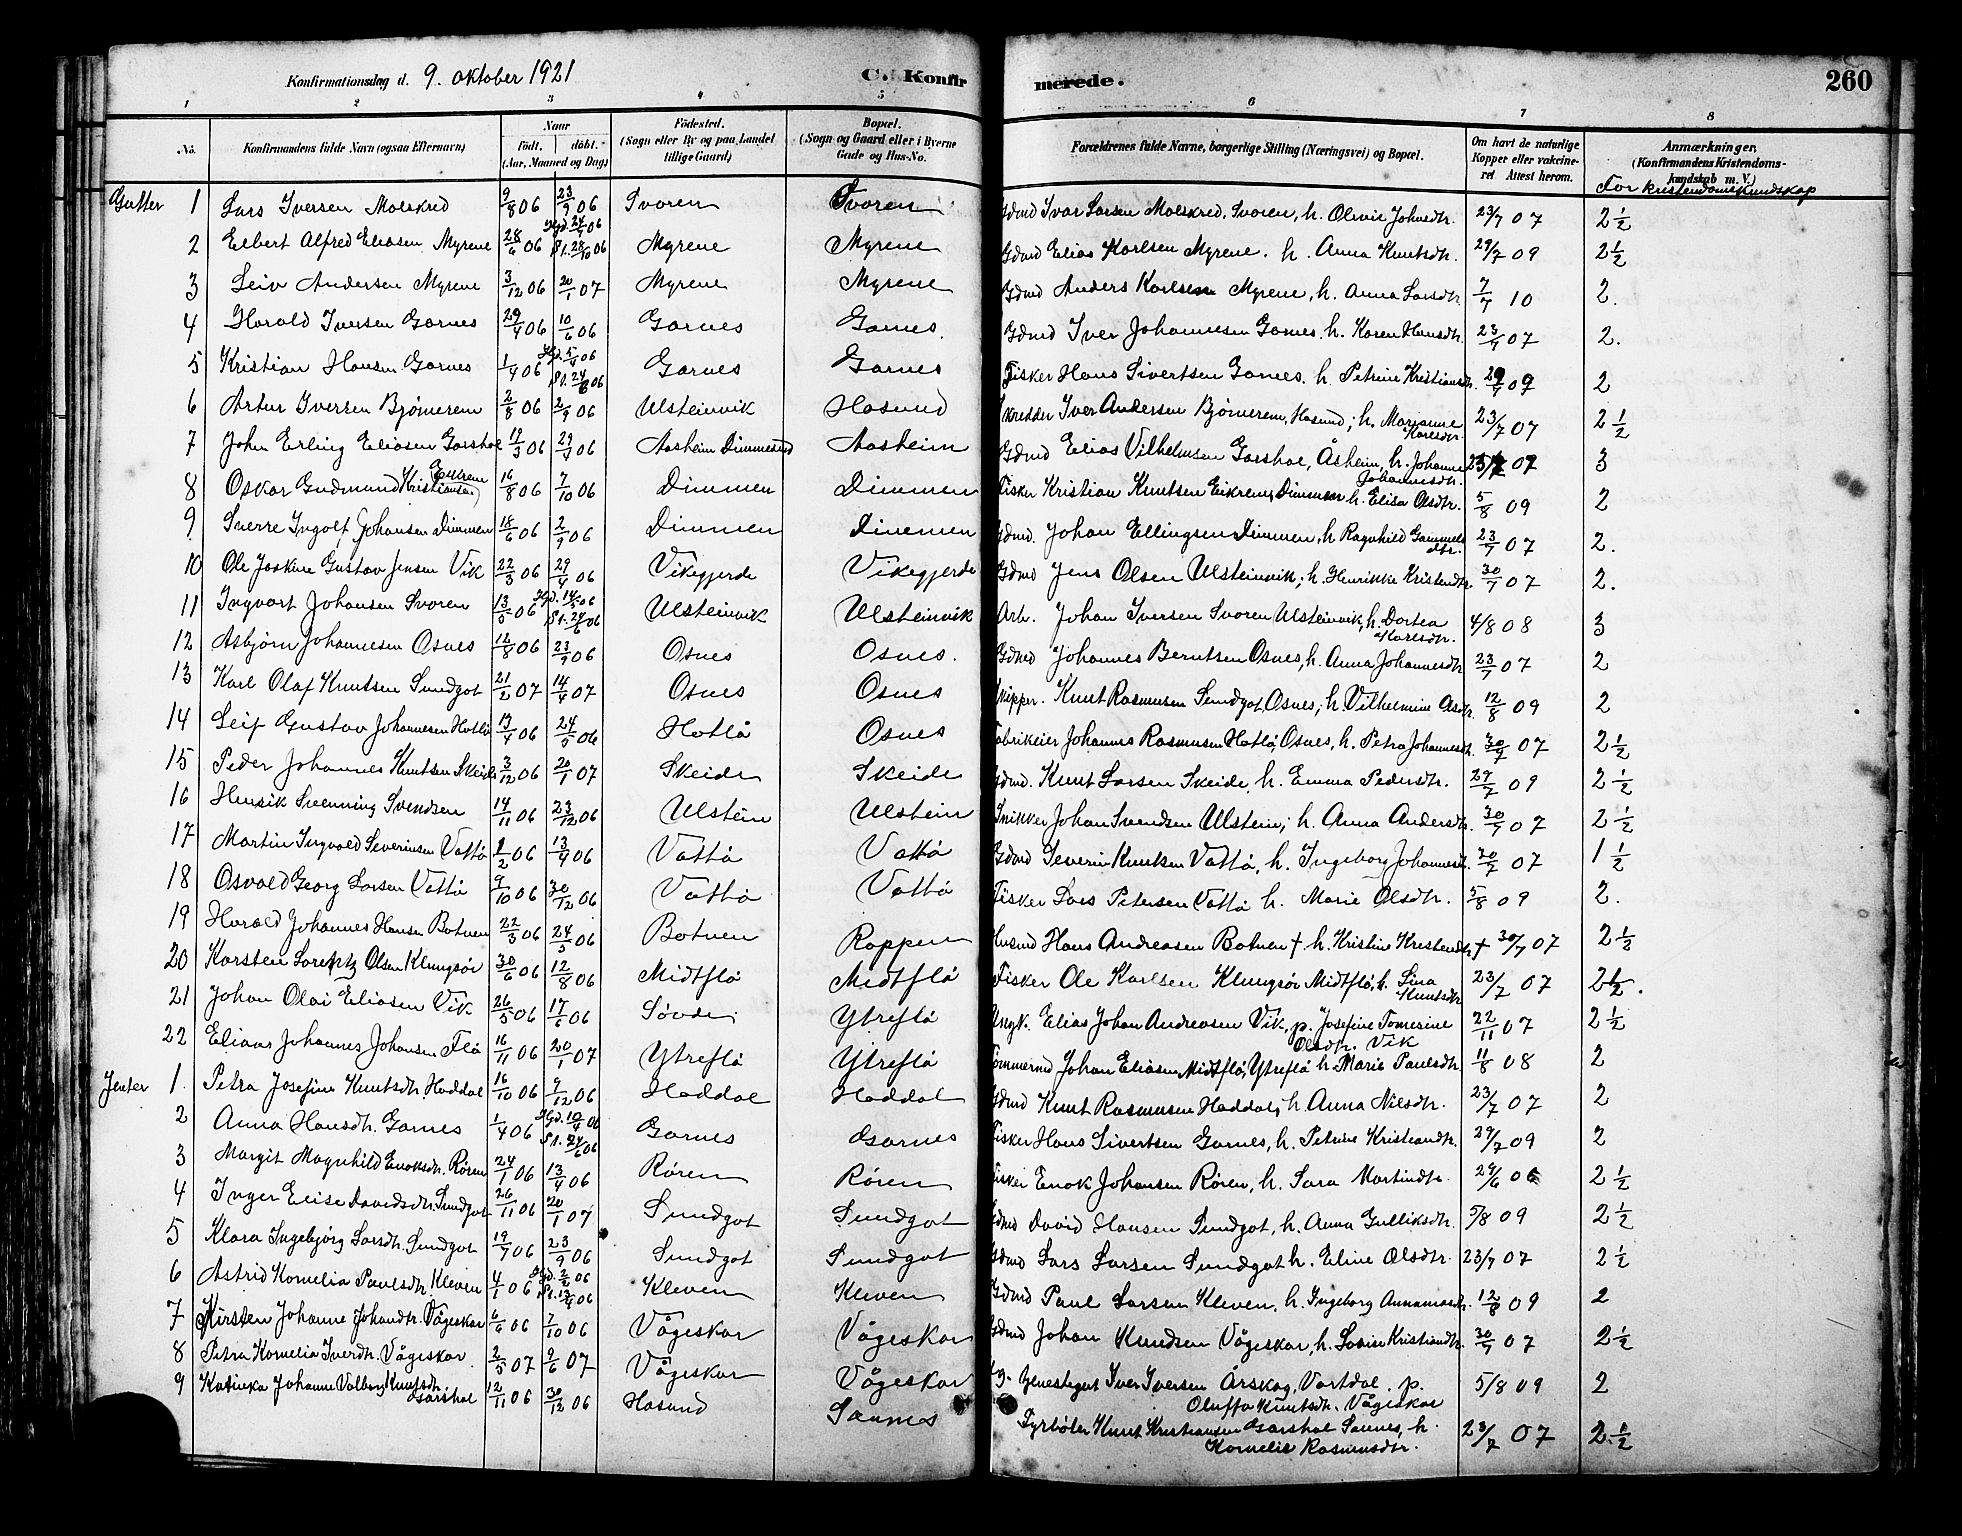 Konfirmationsdag d. 9. oktober 1921 C. Konfir merede. 260
1 2 3 4 5 6 7 8
No. Konfirmandens fulde Navn (ogsaa Efternavn) Naar født. døbt. (Aar, Maaned og Dag) Fødested. (Sogn eller By og paa Landet tillige Gaard) Bopæl. (Sogn og Gaard eller i Byerne Gade og Hus-No. Forældrenes fulde Navne, borgerlige Stilling (Næringsvei) og Bopæl. Om havt de naturlige Kopper eller vakcineret Attest herom. Anmærkninger. (Konfirmandens Kristendomskundskab m. V.)
For kristendomskundskap
Gutter 1 Lars Iversen Molskred 9/8 06 23/9 06 Svoren Svoren Gdmd Ivar Larsen Molskred, Svoren, h. Olivie Johnsdtr. 23/7 07 2 1/2
2 Elbert Alfred Eliasen Myrene 28/6 06 Hjd. 24/7 06 St. 28/10 06 Myrene Myrene Gdmd Elias Karlsen Myrene. h. Anna Knutsdtr. 29/7 09 2 1/2
3 Leiv Andersen Myrene 3/12 06 20/1 07 Myrene Myrene Gdmd Anders Karlsen Myrene, h. Anna Larsdtr. 7/7 10 2.
4 Harald Iversen Garnes 29/4 06 10/6 06 Garnes Garnes. Gdmd Iver Johannesen Garnes. h. Karen Hansdtr. 23/7 07 2.
5 Kristian Hansen Garnes 1/4 06 Hjd. 5/4 06 St. 24/6 06 Garnes Garnes Fisker Hans Sivertsen Garnes. h. Petrine Kristiansdtr. 29/7 09 2
6 Artur Iversen Bjørnerem 2/8 06 2/9 06 Ulsteinvik Hasund Skredder Iver Andersen Bjørnerem, Hasund; h. Marianne Karlsdtr. 23/7 07 2 1/2
7 John Erling Eliasen Garshol 19/3 06 29/4 06 Aasheim Dimmesund Aasheim Gdmd Elias Vilhelmsen Garshol, Åsheim, h. Johanne Johannesdtr. 23/7 07 3
8 Oskar Gudmund Kristiansen Eikrem 16/8 06 7/10 06 Dimmen Dimmen Fisker Kristian Knutsen Eikrem, Dimmen h. Elisa Olsdtr. 5/8 09 2
9 Sverre Ingolf Johansen Dimmen 18/6 06 2/9 06 Dimmen Dimmen Gdmd. Johan Ellingsen Dimmen, h. Ragnhild Gammelsdtr. 23/7 07 2.
10 Ole Joakim Gustav Jensen Vik 22/3 06 29/4 06 Vikegjerde Vikegjerde Gdmd Jens Olsen Ulsteinvik; h. Henrikke Kristendtr. 30/7 07 2.
11 Ingvart Johansen Svoren 13/5 06 Hjd. 14/5 06 St. 24/6 06 Ulsteinvik Ulsteinvik Arb. Johan Iversen Svoren Ulsteinvik, h. Dortea Karlsdtr. 4/8 08 3
12 Asbjørn Johannesen Osnes 12/8 06 23/9 06 Osnes Osnes. Gdmd Johannes Berntsen Osnes, h. Anna Johannesdtr 23/7 07 2
13 Karl Olaf Knutsen Sundgot 21/2 07 14/4 07 Osnes Osnes Skipper. Knut Rasmusen Sundgot, Osnes; h. Vilhelmine Olsdtr. 12/8 09 2
14 Leif Gustav Johannesen Hatlø 13/4 06 24/5 06 Hatlø Osnes Fabrikeier Johannes Rasmusen Hatlø, Osnes, h. Petra Johannesdtr. 30/7 07 2 1/2
15 Peder Johannes Knutsen Skeide 3/12 06 20/1 07 Skeide Skeide Gdmd. Knut Larsen Skeide, h. Emma Pedersdtr. 29/7 09 2 1/2
16 Henrik Svenning Svendsen 14/11 06 23/12 06 Ulstein Ulstein Snikker Johan Svendsen Ulstein; h. Anna Andersdtr. 30/7 07 2 1/2
17 Martin Ingvald Severinsen Vattø 2/2 06 13/4 06 Vattø Vattø Gdmd Severin Knutsen Vattø, h. Ingeborg Johannesdtr. 30/7 07 1 1/2
18 Osvald Georg Larsen Vattø 9/10 06 30/12 06 Vattø Vattø Fisker Lars Petersen Vattø h. Marie Olsdtr. 5/8 09 2.
19 Harald Johannes Hansen Botnen 22/3 06 24/5 06 Botnen Roppen Husmd Hans Andreasen Botnen † h. Kristine Kristendtr † 30/7 07 2 1/2
20 Karsten Lorentz Olsen Klungsør 30/6 06 12/8 06 Midtflø Midtflø Fisker Ole Karlsen Klungsør Midtflø, h. Lina Knutsdtr 23/7 07 2 1/2.
21 Johan Olai Eliasen Vik 26/5 06 17/6 06 Søvde Ytreflø Ungk. Elias Johan Andreasen Vik, p. Josefine Tomesine Olsdtr. Vik 22/11 07 2 1/2
22 Elias Johannes Johansen Flø 16/11 06 20/1 07 Ytreflø Ytreflø Tømmermd Johan Eliasen Midtflø, Ytreflø h. Marie Paulsdtr. 11/8 08 2
Jenter 1. Petra Josefine Knutsdtr. Haddal 16/10 06 9/12 06 Haddal Haddal Gdmd Knut Rasmusen Haddal; h. Anna Nilsdtr. 23/7 07 2
2 Anna Hansdtr. Garnes 1/4 06 Hjd. 10/4 06 St. 24/6 06 Garnes Garnes Fisker Hans Sivertsen Garnes, h. Petrine Kristiandtr. 29/7 09 2
3 Margit Magnhild Enoksdtr. Røren 24/1 06 13/4 06 Røren Røren Fisker Enok Johansen Røren, h. Sara Martindtr. 29/6 06 2 1/2
4 Inger Elise Davidsdtr. Sundgot 26/11 06 20/1 07 Sundgot Sundgot Gdmd David Hansen Sundgot, h. Anna Gulliksdtr. 5/8 09 2 1/2
5 Klara Ingebjørg Larsdtr. Sundgot 19/7 06 23/9 06 Sundgot Sundgot Gdmd Lars Larsen Sundgot h. Eline Olsdtr. 23/7 07 2 1/2
6 Astrid Kornelia Paulsdtr. Kleven 4/1 06 Hjd. 2/2 06 St. 13/4 06 Kleven Kleven Gdmd Paul Larsen Kleven, h. Ingeborg Annamasdtr. 12/8 09 2
7 Kirsten Johanne Johandtr. Vågeskar 6/6 06 7/10 06 Vågeskar Vågeskar Gdmd Johan Knudsen Vågeskar, h. Lovise Kristiandtr. 30/7 07 2 1/2
8 Petra Kornelia Iverdtr. Vågeskar 2/5 07 9/6 07 Vågeskar Vågeskar Iver Iversen Årskog, Vartdal. p. Oluffa Knutsdtr. Vågeskar 5/8 09 2
9 Katinka Johanne Valborg Knutsdtr. Garshol 12/11 06 30/12 06 Hasund Saunes Fyrbøter Knut Kristiansen Garshol Saunes, h. Kornelie Rasmusdtr. 23/7 07 2. 1/2